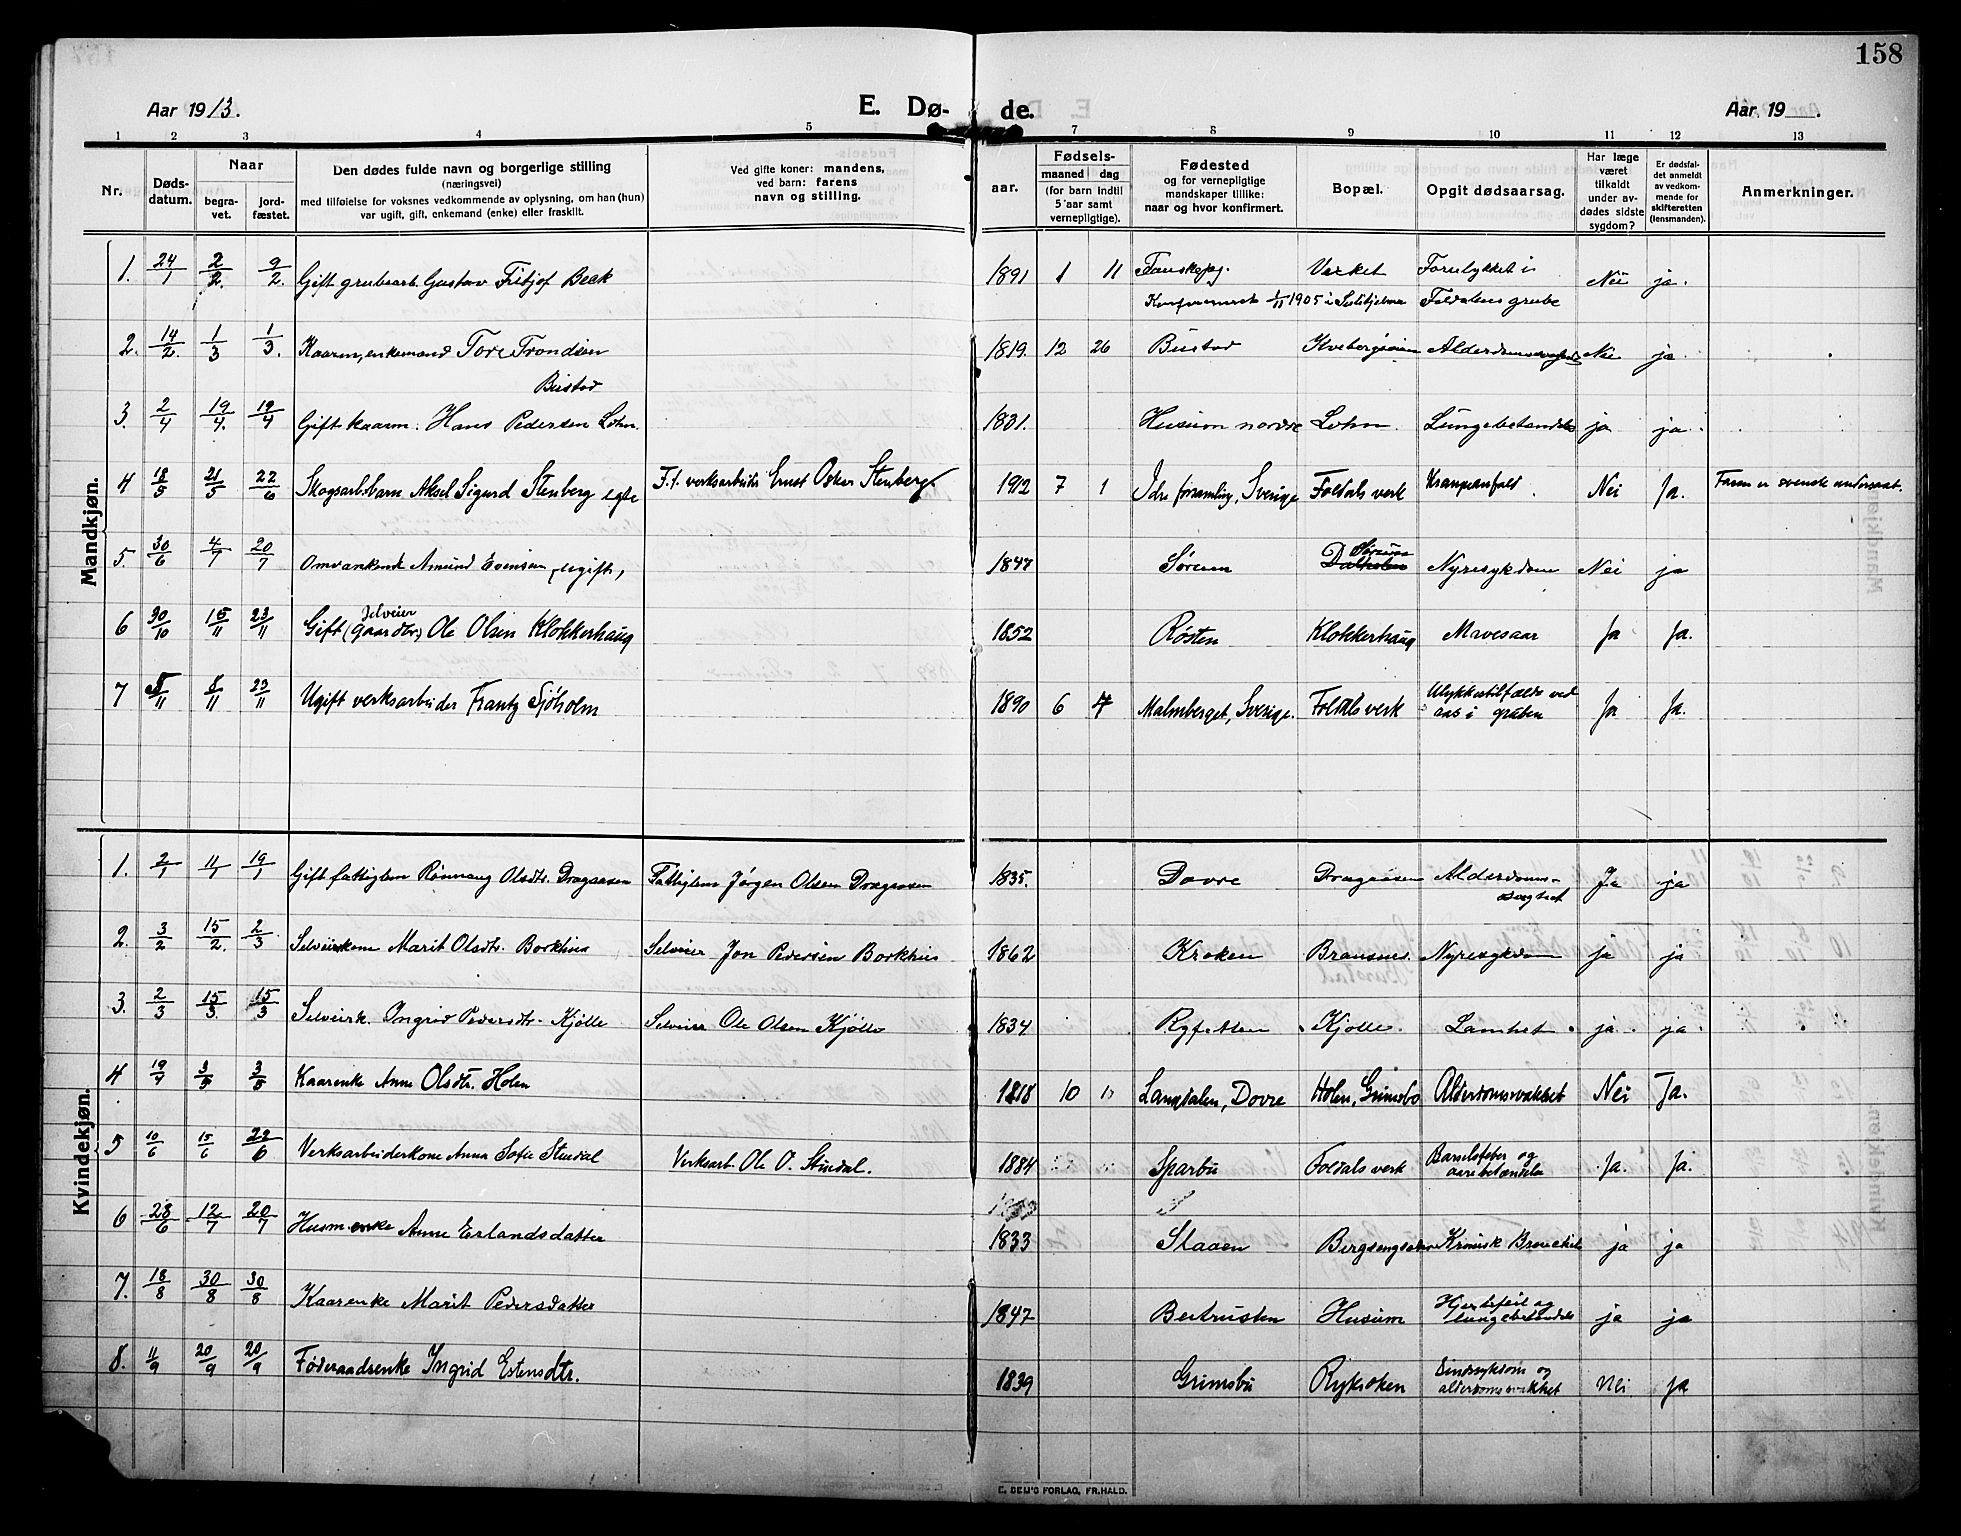 158
Aar 1913.
E. Dø-
de.
Aar 19 .
1 2 3 4 5 7 8 9 10 11 12 13
Nr.
Døds-
datum.
Naar
begra-
vet.
jord-
fæstet.
Den dødes fulde navn og borgerlige stilling
(næringsvei)
med tilføielse for voksnes vedkommende av oplysning, om han (hun)
var ugift, gift, enkemand (enke) eller fraskilt.
Ved gifte koner: mandens,
ved barn: farens
navn og stilling.
aar.
Fødsels-
maaned dag
(for barn indtil
5 aar samt
vernepligtige).
Fødested
og for vernepligtige
mandskaper tillike:
naar og hvor konfirmert.
Bopæl.
Opgit dødsaarsag.
Har læge
været
tilkaldt
under av-
dødes sidste
sygdom?
Er dødsfal-
det anmeldt
av vedkom-
mende for
skifteretten
(lensmanden).
Anmerkninger.
Mandkjøn.
1. 24/1 2/2. 9/2. Gift grubearb. Gustav Fritjof Beck 1891 1 11 Verket Forulykket i Nei ja.
1/11 1905 i Foldalens grube
2. 14/2. 1/3 1/3. Kaarm, enkemand Tore Trondsen 1819. 12 26 Bustad Nei ja.
Bustad
3. 2/4 19/4. 19/4 Gift kaarm. Hans Pedersen Lohn. 1831. Husum nordre Lohn. ja ja.
4 18/5 21/5 22/6 Skogsarb.barn Aksel Sigurd Stenberg egte F. f. verksarbeider Ernst Oskar Stenberg 1912 7 1 Idre forsamling, Sverige Foldals verk Krampeanfald. Nei Ja. Faren er svensk undersaat.
5. 30/6 4/7 20/7 Omvankende Amund Evensen, ugift, 1847 Sørum Sørum Nyresykdom Nei ja
Dalholen
6 30/10 15/11 23/11 Gift (Selveier gaardbr.) Ole Olsen Klokkerhaug 1852 Røsten Klokkerhaug Mavesaar Ja Ja.
7 5/11 8/11 23/11 Ugift verksarbeider Frantz Sjöholm 1890 6 7 Malmberget, Sverige. Foldals verk Ulykkestilfælde ved Ja Ja.
aas i gruben
Kvindekjøn.
1. 2/1 11/1 19/1 Gift fattiglem Rönnaug Olsdtr. Dragaasen Fattiglem Jørgen Olsen Dragaasen 1835. Dovre Dragaasen Alderdoms- Ja ja
svaghet
2. 3/2 15/2. 2/3 Selveierkone Marit Olsdtr. Borkhus Selveier Jon Pedersen Borkhus 1862 Kroken Bransnes. Nyresykdom ja ja
3. 2/3 15/3. 15/3 Selveierk. Ingrid Pedersdtr. Kjølle Selveier Ole Olsen Kjølle 1834 Kjølle. Lamhet ja. ja.
4 19/4 3/5 3/5 Kaarenke Anne Olsdtr. Holen 1818 10 11 Langdalen, Dovre Holen, Grimsbo Alderdomssvakhet Nei Ja.
5 10/6 15/6 22/6 Verksarbeiderkone Anna Sofie Stendal Verksarb. Ole O. Stendal. 1884 Sparbu Foldals verk Barselfeber og Ja. Ja.
aarebetændelse
6 28/6 12/7 20/7 Husm.enke Anne Erlandsdatter 1833 Slaaen Kronisk ja ja
7. 18/8 30/8 30/8 Kaarenke Marit Pedersdatter 1847 Husum Hjertefeil og ja ja
lungebetændelse
8. 11/9 20/9 20/9 Føderaadsenke Ingrid Estensdtr. 1839 Grimsbu Sindssykdom og Nei Ja
alderdomssvakhet
E. SEM'S FORLAG, FR.HALD.